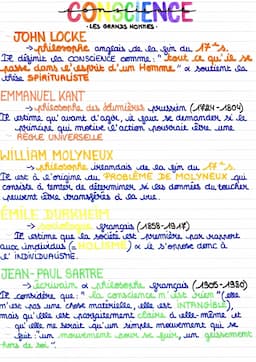 CONSCIENCE
• LES GRANDS HOMMES •
JOHN LOCKE
→ philosophe anglais de la fin du 17ème s.
Il définit la CONSCIENCE comme : "tout ce qu'il se
passe dans l'esprit d'un Homme" & soutient la
thèse SPIRITUALISTE
EMMANUEL KANT
→ philosophe des Lumières prussien (1724-1804)
Il estime qu'avant d'agir, je dois me demander si le
principe qui motive l'action pourrait être une
RÈGLE UNIVERSELLE
WILLIAM MOLYNEUX
→ philosophe irlandais de la fin du 17ème s.
Il est à l'origine du PROBLÈME DE MOLYNEUX qui
consiste à tenter de déterminer si les données du toucher
peuvent être transférées à la vue.
ÉMILE DURKHEIM
→ sociologue français (1858-1917)
Il estime que la société est première par rapport
aux individus (= HOLISME) & il s'oppose donc à
l'INDIVIDUALISME.
JEAN-PAUL SARTRE
→ écrivain & philosophe français (1905-1980)
Il considère que : " la conscience n'est rien " (elle
n'est pas une chose matérielle, elle est INTANGIBLE),
mais qu'elle est parfaitement claire à elle-même et
qu'elle ne serait qu'un simple mouvement qui se
fait : "un mouvement pour se fuir, un glissement
hors de soi".